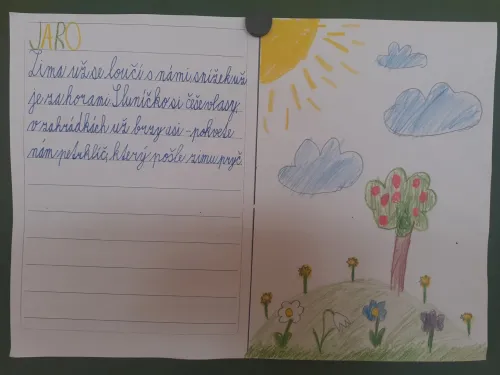 JARO
Zima už se loučí s námi snížek už
je za horami. Sluníčko si češe vlasy
v zahrádkách už brzy asi - pokvete
nám petrklíč, který pošle zimu pryč.